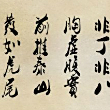 非丁非八
胸虛腹實
前推泰山
發如虎尾